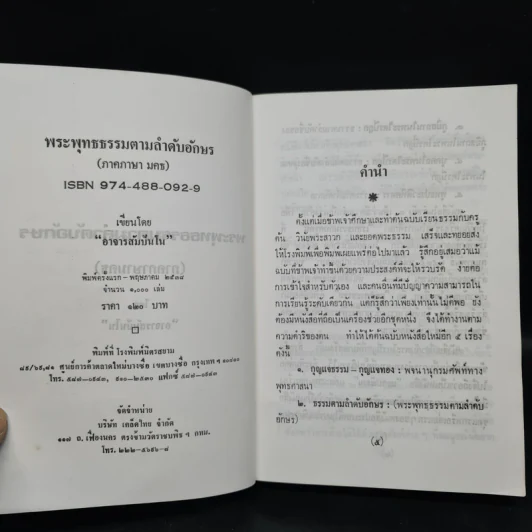 พระพุทธธรรมตามลำดับอักษร
(ภาคภาษา มคธ)
ISBN 974-488-092-9
เขียนโดย
"อาจารสัมปันโน"
พิมพ์ครั้งแรก - พฤษภาคม ๒๕๓๘
จำนวน ๑,๐๐๐ เล่ม
ราคา ๑๒๐ บาท
พิมพ์ที่ โรงพิมพ์มิตรสยาม
ศูนย์การค้าตลาดใหม่บางซื่อ เขตบางซื่อ กรุงเทพ ฯ
โทร.
จัดจำหน่าย
บริษัท เคล็ดไทย จำกัด
๑๑๗ ถ. เฟื่องนคร ตรงข้ามวัดราชบพิธ ฯ กทม.
โทร. ๒๒๒-๕๖๙๖-๘
คำนำ
ตั้งแต่เมื่อข้าพเจ้าศึกษาและทำต้นฉบับเรียนธรรมกับครู
ต้น วินัยพระสาวก และยอดพระธรรม เสร็จและทยอยส่ง
ให้โรงพิมพ์เพื่อพิมพ์เผยแพร่ต่อไปมาแล้ว รู้สึกอยู่เสมอว่าแม้
ฉบับที่ข้าพเจ้าทำขึ้นด้วยความประสงค์ที่จะให้รวบรัด ง่ายต่อ
การเข้าใจสำหรับตัวเอง และคนอื่นที่มีปัญญาความสามารถใน
การเรียนรู้ระดับเดียวกัน แต่ก็รู้สึกว่าเพียงเท่านั้นไม่พอ ยัง
ต้องมีหนังสือที่ถือเป็นเครื่องช่วยอีกชุดหนึ่ง จึงได้ทำงานตาม
ความดำริของตน ทำให้ได้ต้นฉบับหนังสือมาอีก ๕ เรื่อง
ดังนี้
๑. กุญแจธรรม - กุญแจทอง : พจนานุกรมศัพท์ทาง
พุทธศาสนา
๒. ธรรมตามลำดับอักษร : (พระพุทธธรรมตามลำดับ
อักษร)
(๕)